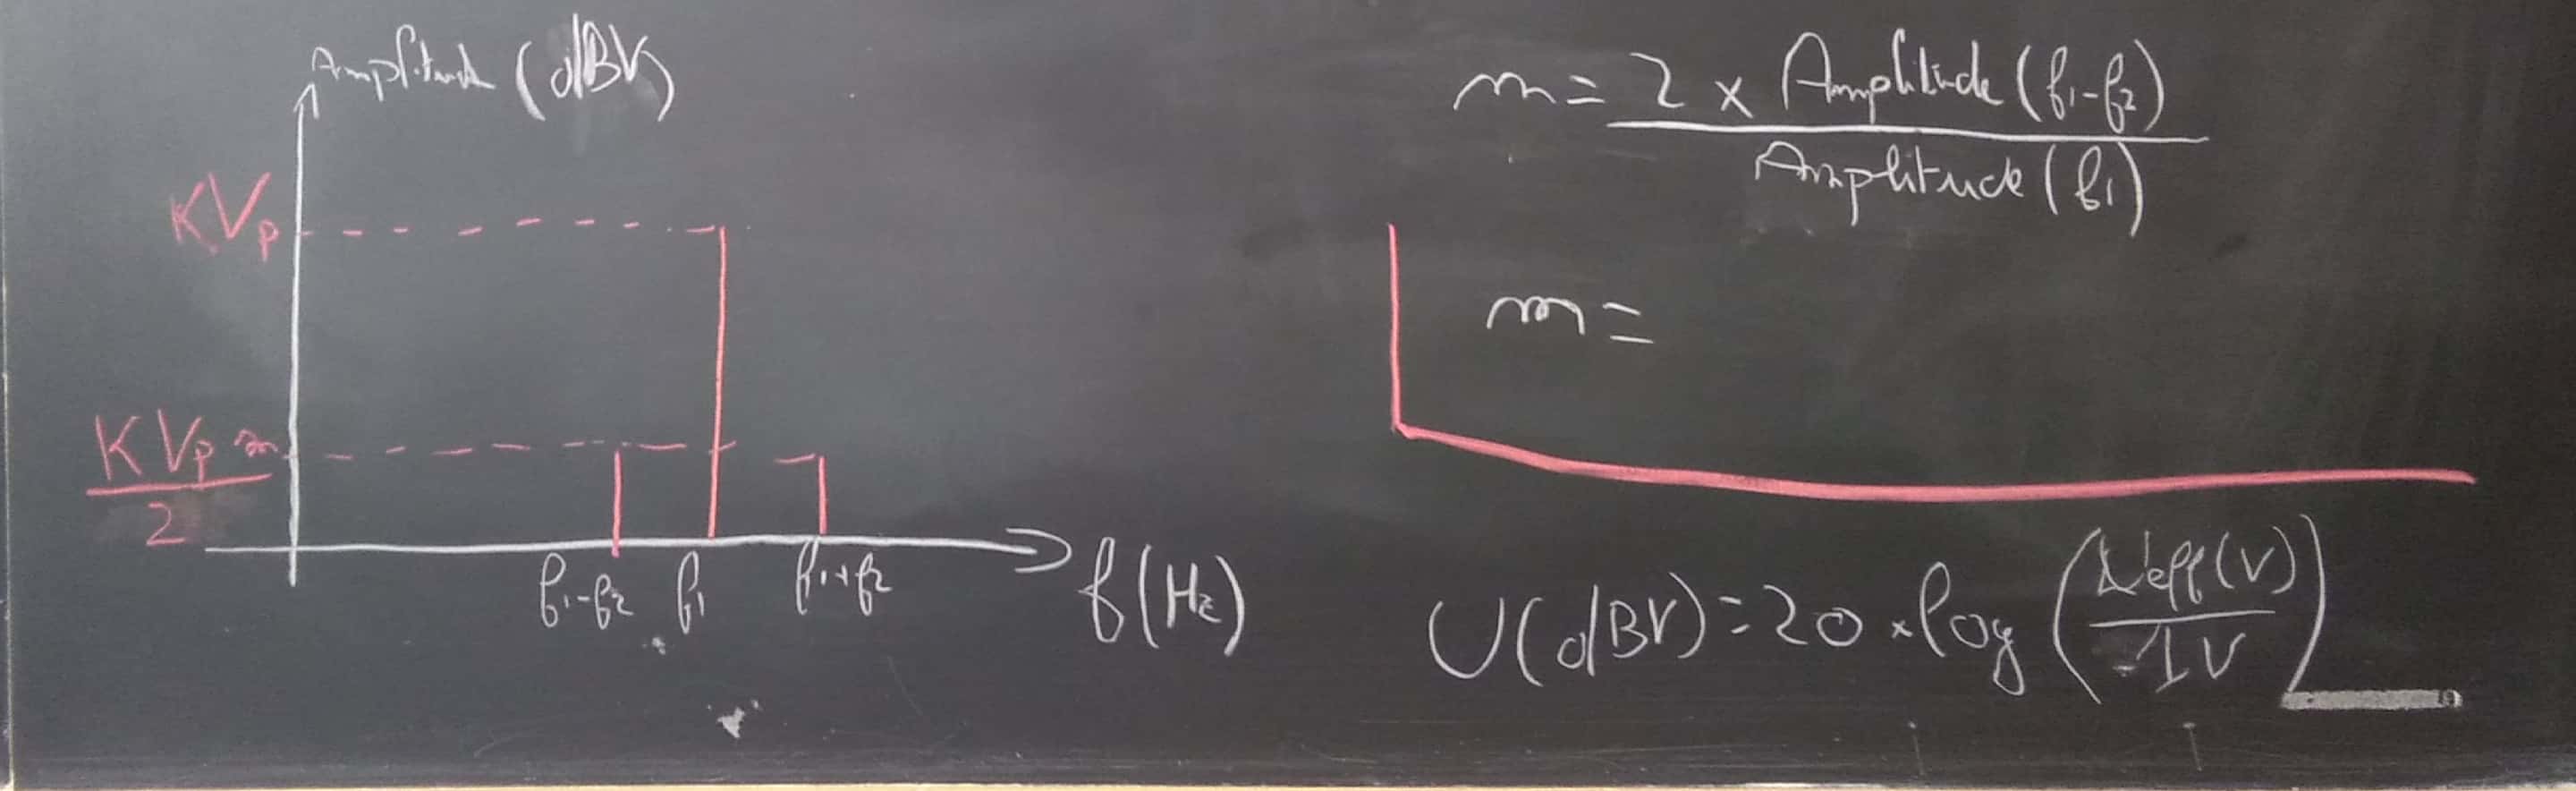 Amplitude (dBV)
KVp
KVp m
2
f1-f2 f1 f1+f2 f(Hz)
m = 2 x Amplitude (f1-f2)
Amplitude (f1)
m =
U(dBV) = 20 x log (Ueff(V)
1V)